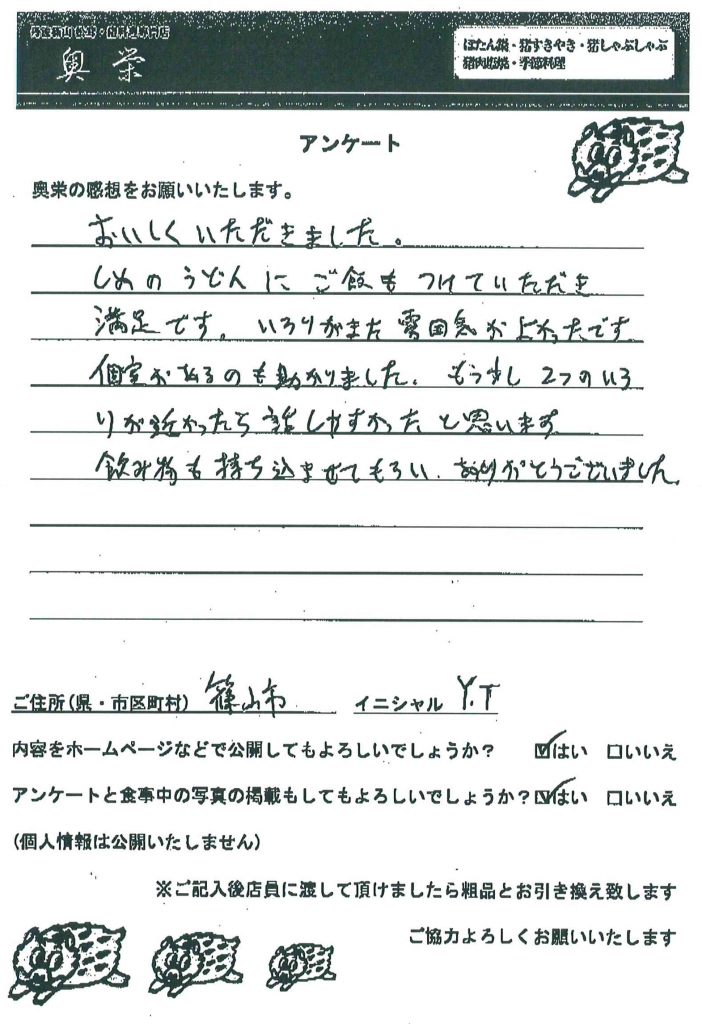 丹波篠山 猪専・猪料理専門店
奥栄
ぼたん鍋・猪すきやき・猪しゃぶしゃぶ
猪肉塩焼・季節料理
アンケート
奥栄の感想をお願いいたします。
おいしくいただきました。
しめのうどんにご飯もつけていただき
満足です。いろりがまた雰囲気がよかったです
個室があるのも助かりました。もう少し2つのいろ
りが近かったら話しやすかったと思います
飲み物も持ち込ませてもらい、ありがとうございました。
ご住所(県・市区町村) 篠山市 イニシャル Y.T
内容をホームページなどで公開してもよろしいでしょうか? ☑はい □いいえ
アンケートと食事中の写真の掲載もしてもよろしいでしょうか?☑はい □いいえ
(個人情報は公開いたしません)
※ご記入後店員に渡して頂けましたら粗品とお引き換え致します
ご協力よろしくお願いいたします